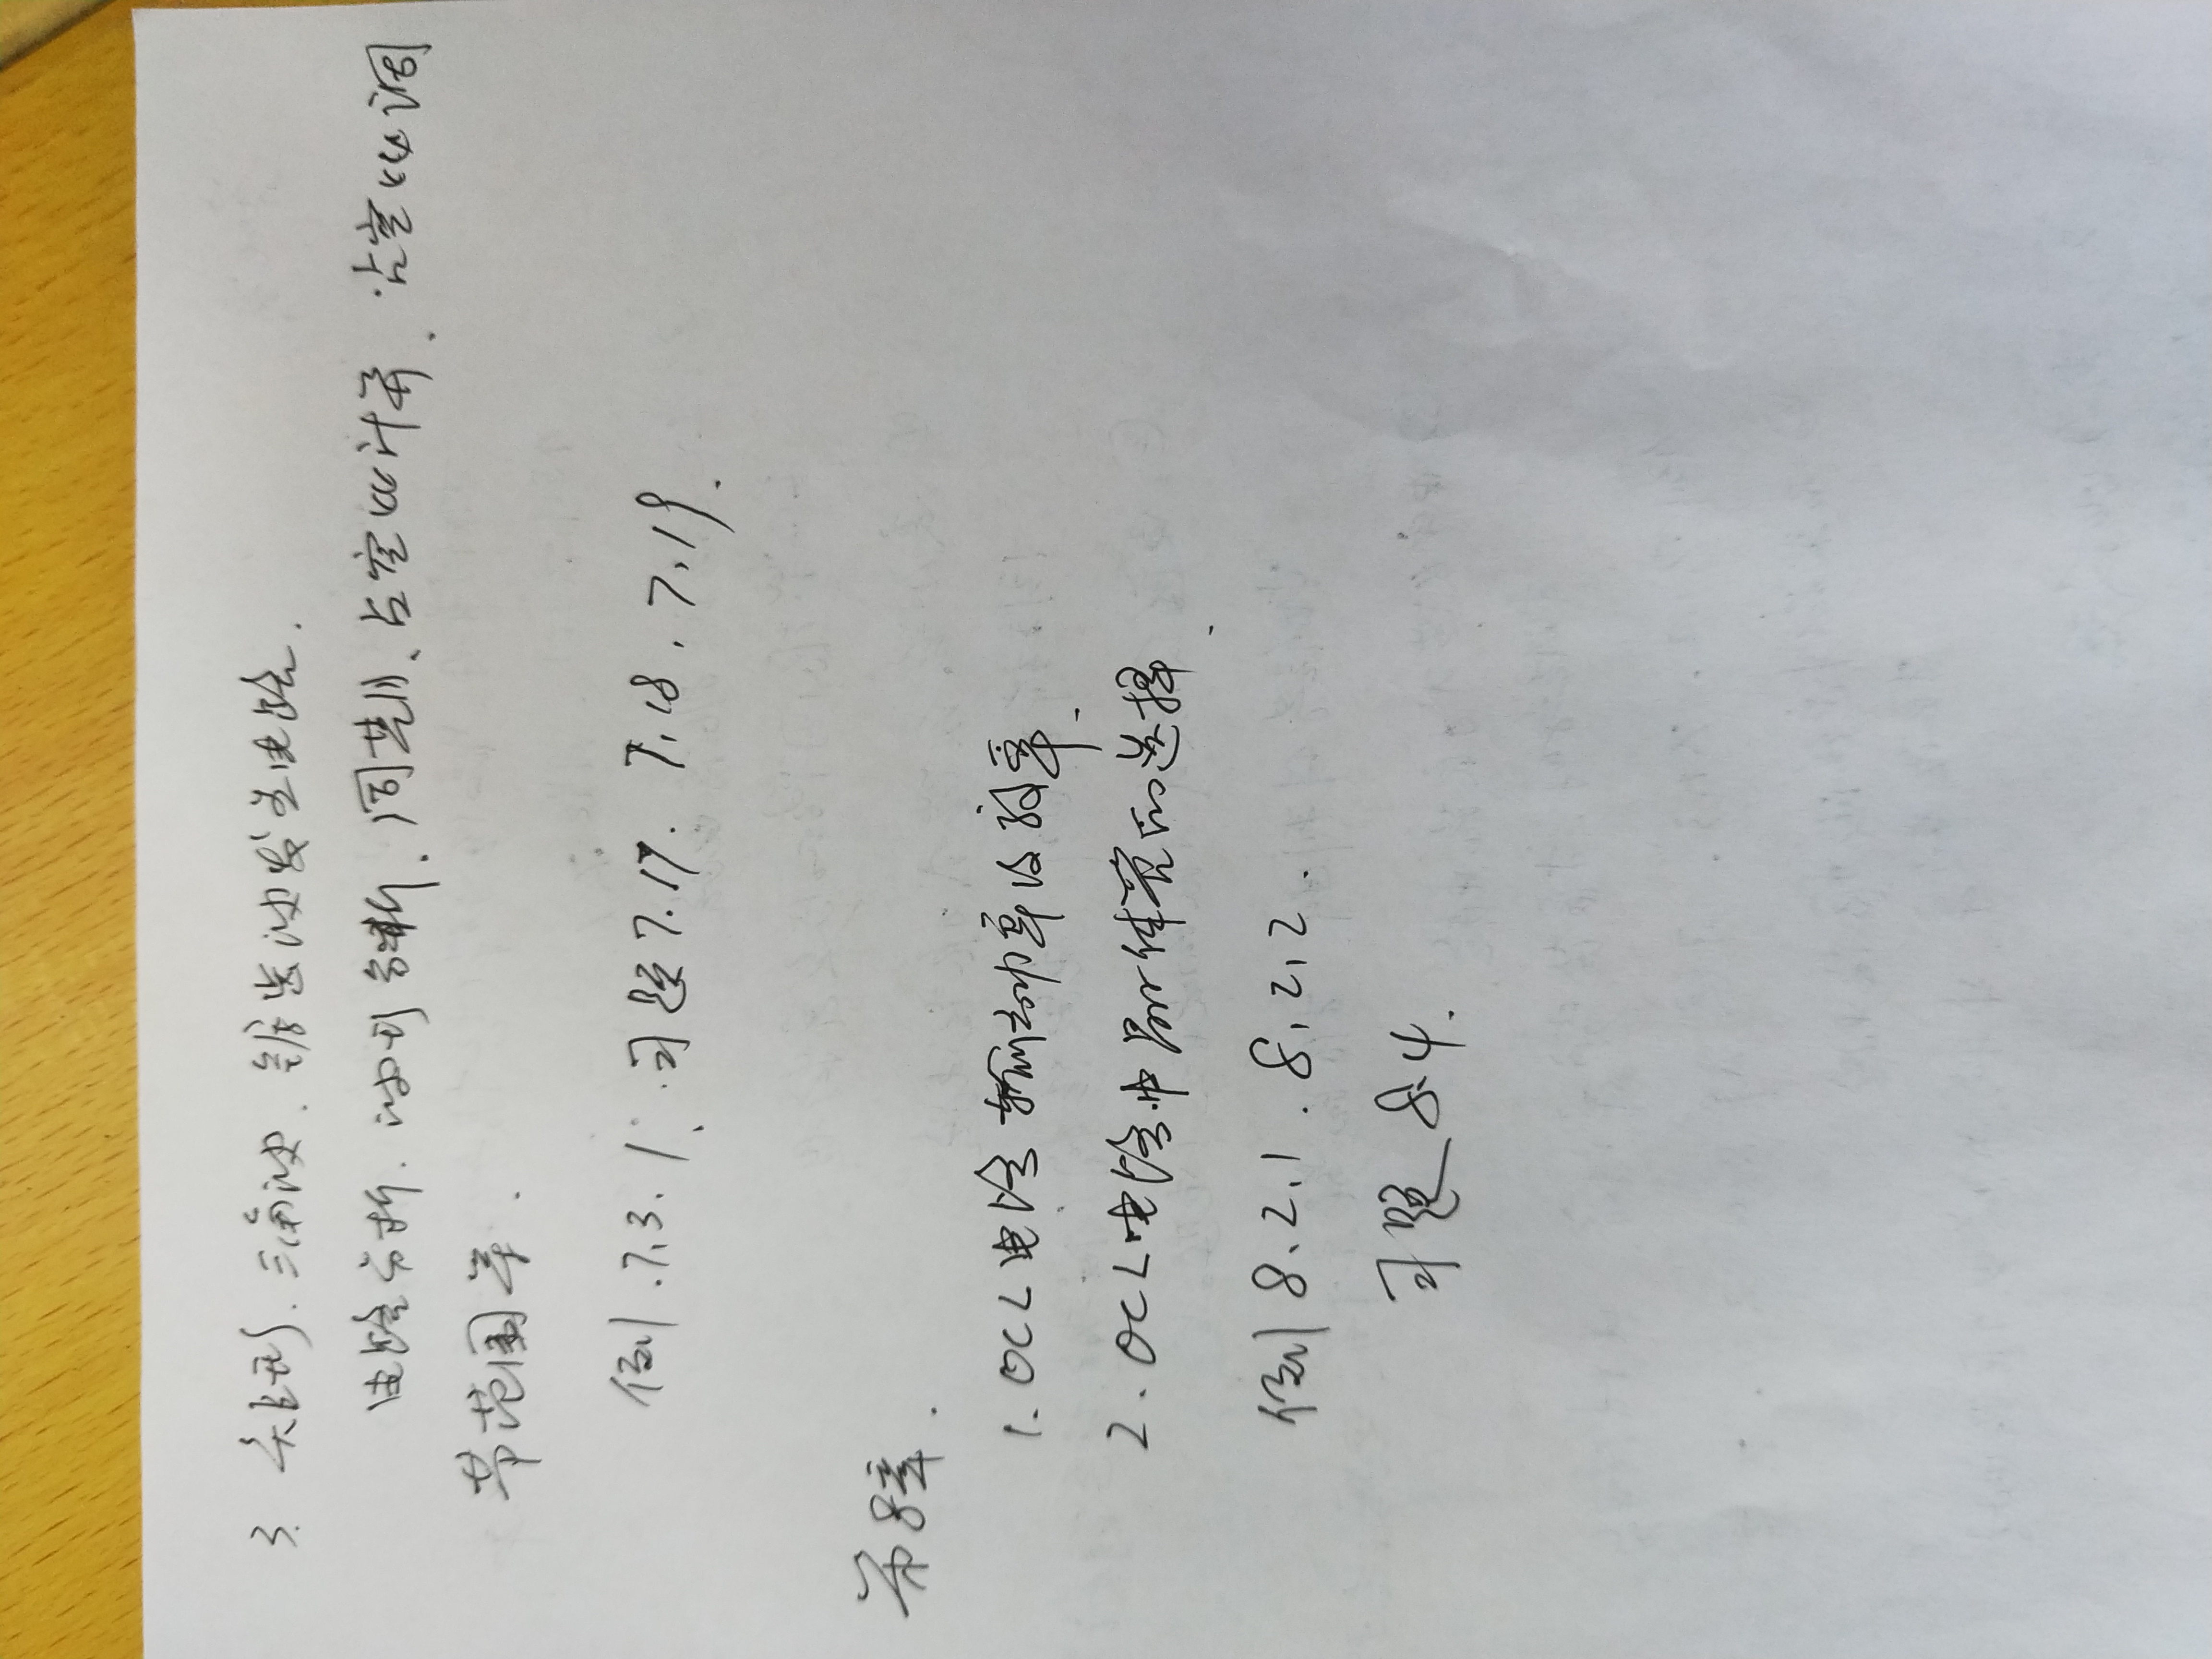 3. 矩形. 三角波. 锯齿波发生电路.
电路分析. 波形分析. 周期、占空比计算. 占空比调
节范围等.
例.7.3.1. 习题7.17. 7.18. 7.19.
第8章.
1. OCL电路输出功率及效率.
2. OCL电路中晶体管的选择.
例8.2.1. 8.2.2.
习题8.4.